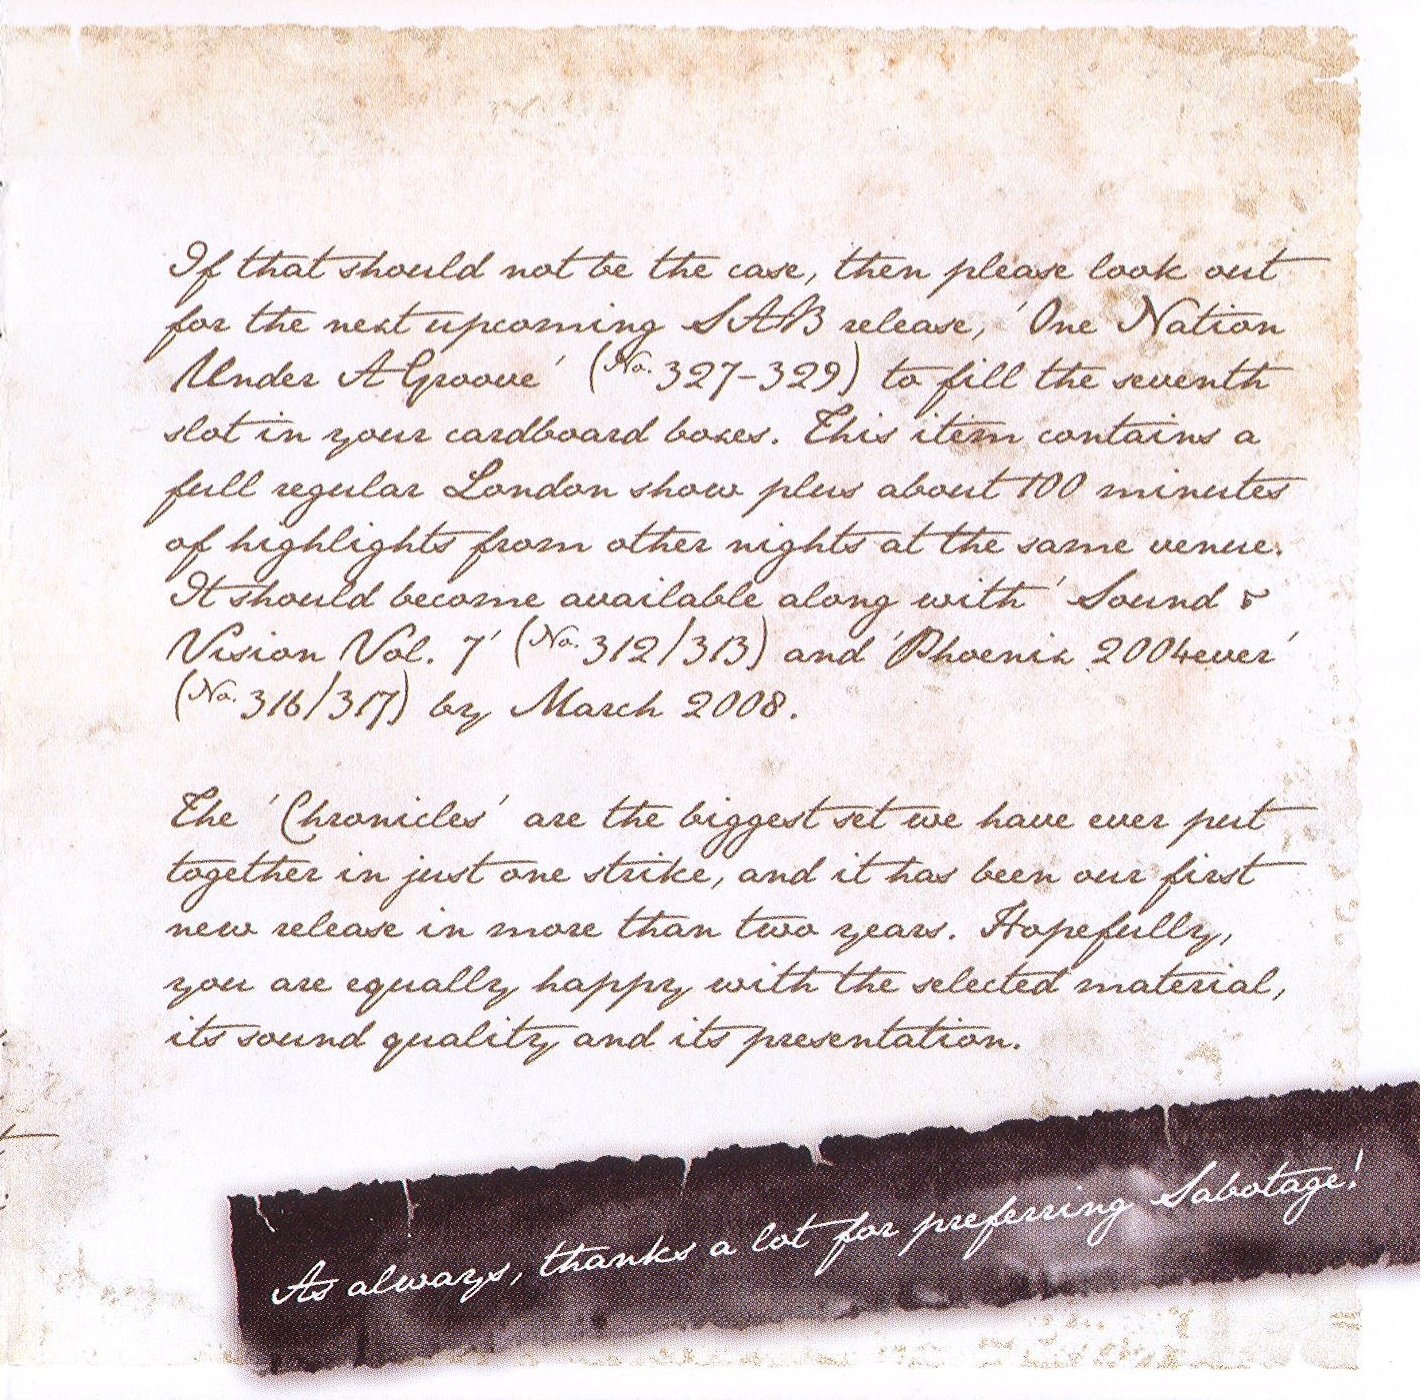 If that should not be the case, then please look out
for the next upcoming SAB release, 'One Nation
Under A Groove' (No. 327-329) to fill the seventh
slot in your cardboard boxes. This item contains a
full regular London show plus about 100 minutes
of highlights from other nights at the same venue.
It should become available along with 'Sound &
Vision Vol. 7' (No. 312/313) and 'Phoenix 2004ever'
(No. 316/317) by March 2008.
The 'Chronicles' are the biggest set we have ever put
together in just one strike, and it has been our first
new release in more than two years. Hopefully,
you are equally happy with the selected material,
its sound quality and its presentation.
As always, thanks a lot for preferring Sabotage!